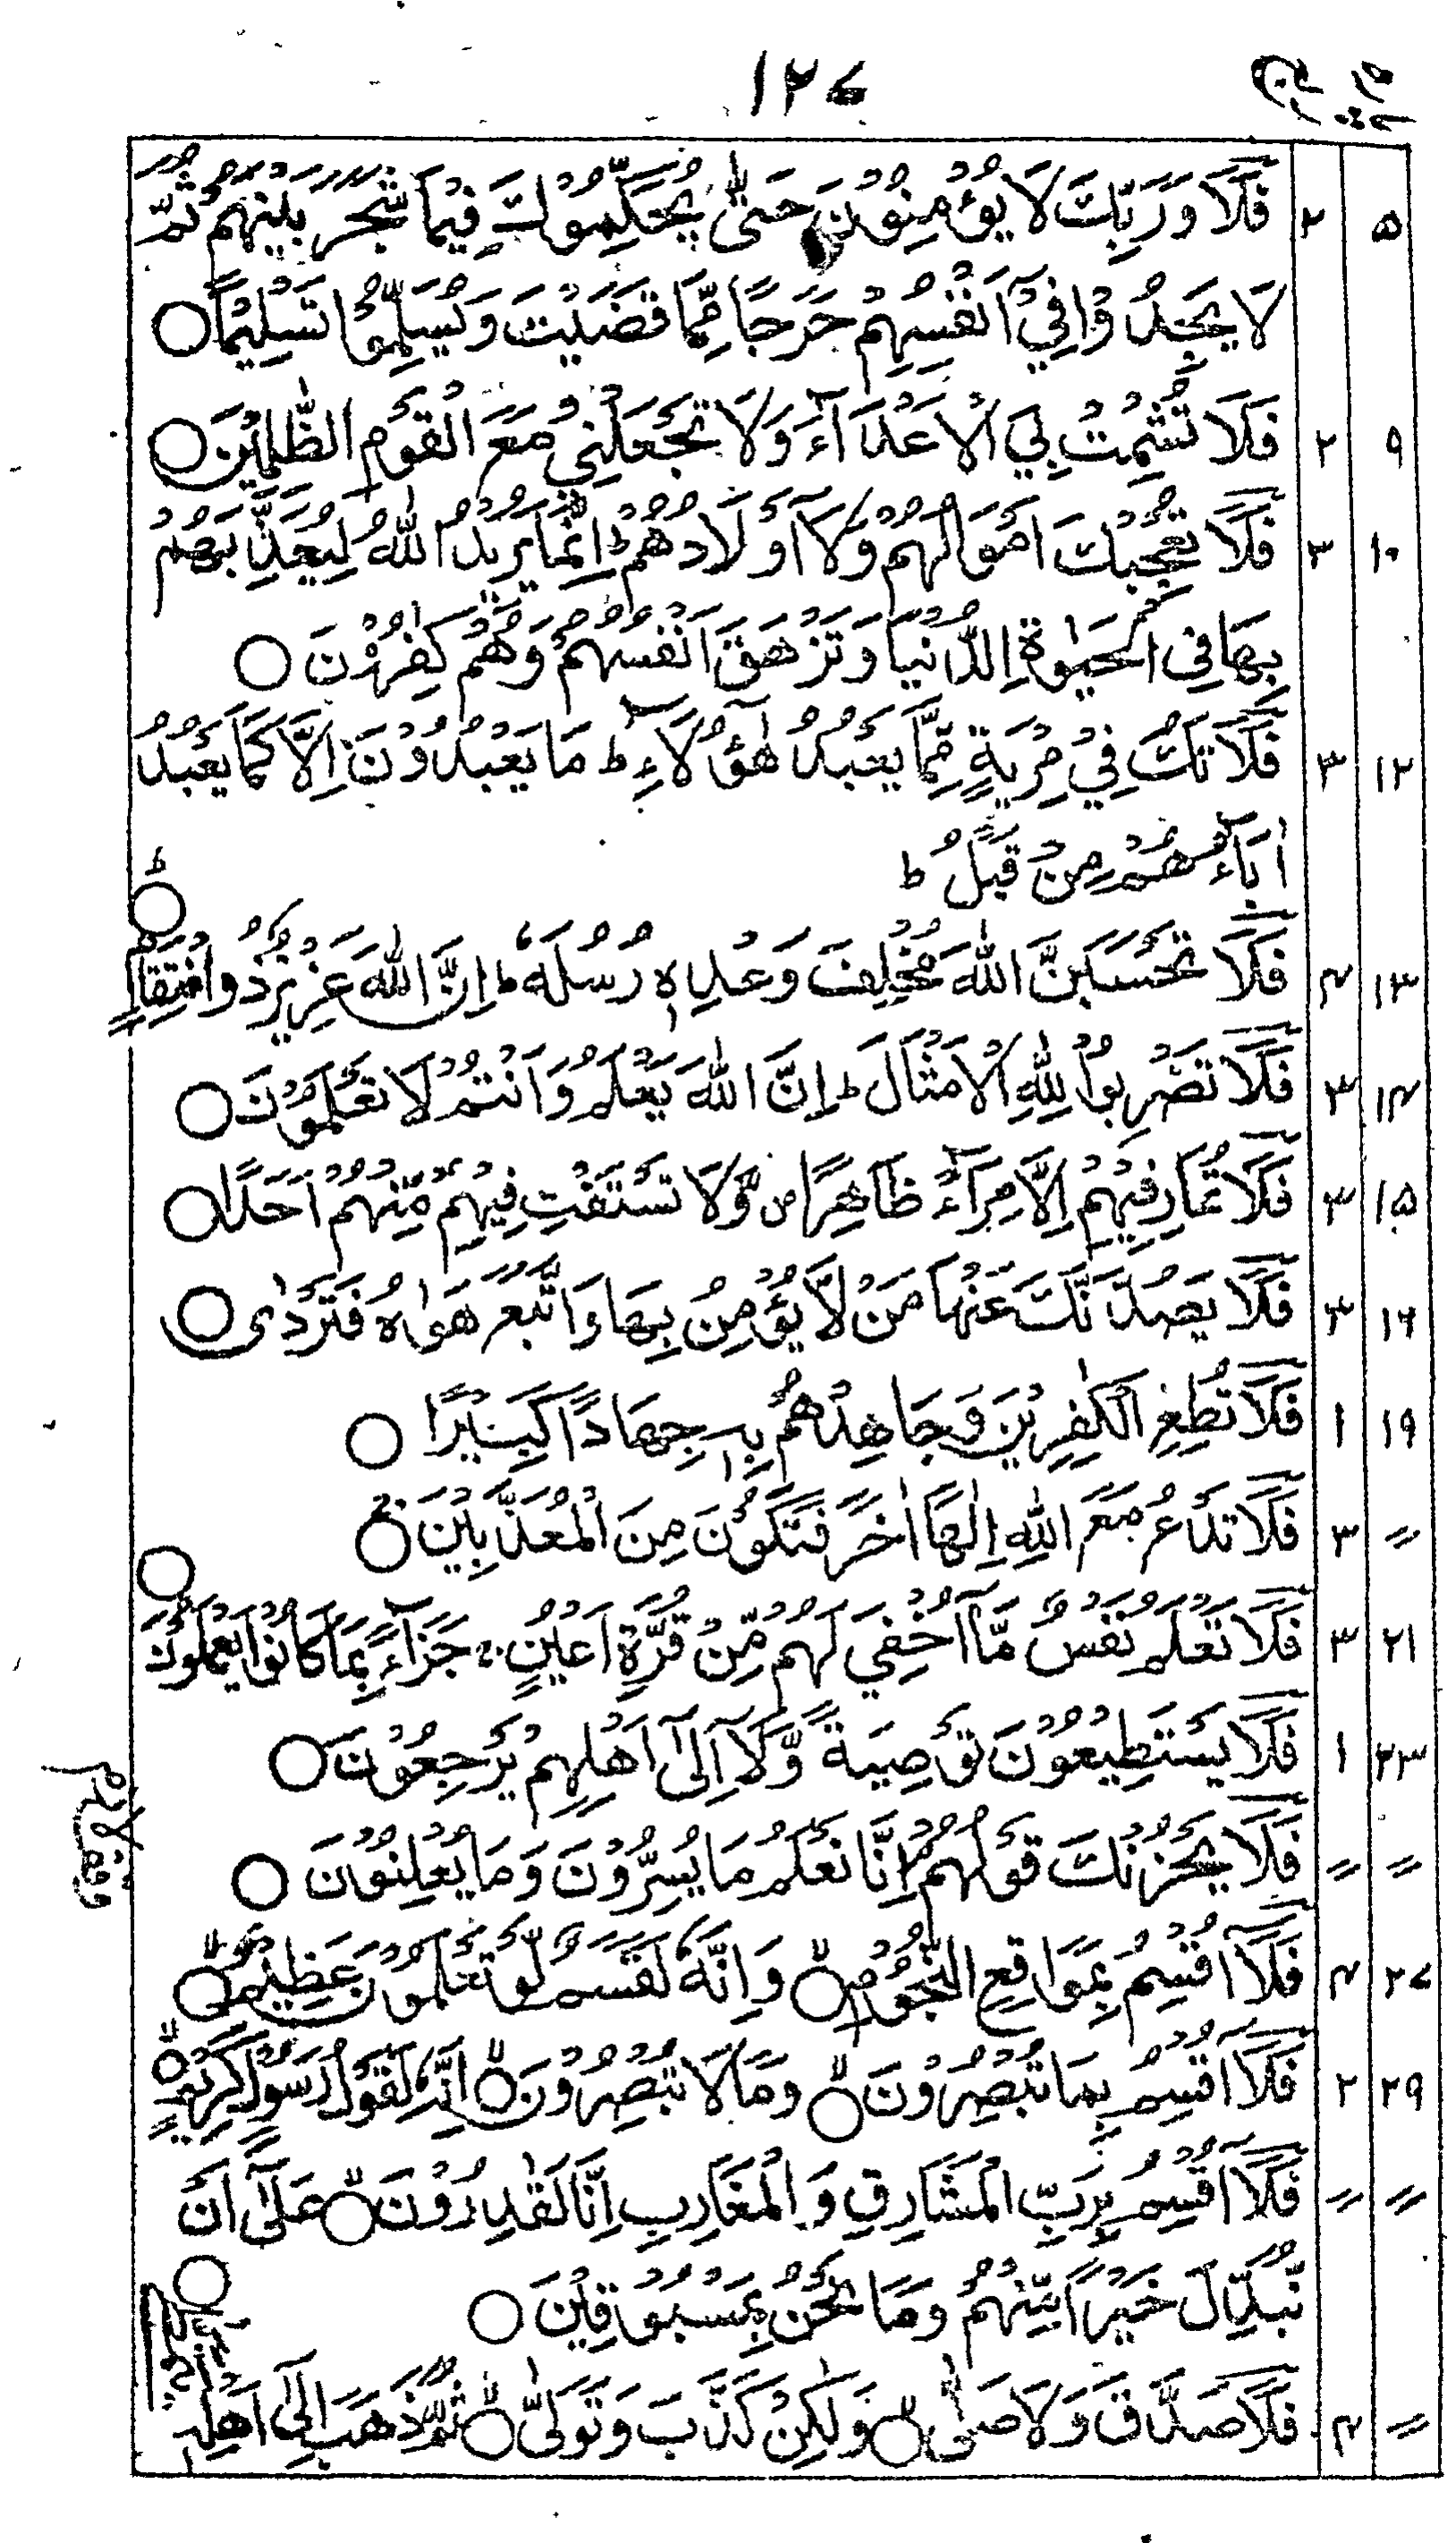 ١٢٧
فَلَا وَرَبِّكَ لَا يُؤْمِنُوْنَ حَتّٰى يُحَكِّمُوْكَ فِيْمَا شَجَرَ بَيْنَهُمْ ثُمَّ ٢ ٥
لَا يَجِدُوْا فِيْٓ اَنْفُسِهِمْ حَرَجًا مِّمَّا قَضَيْتَ وَيُسَلِّمُوْا تَسْلِيْمًا ○
فَلَا تُشْمِتْ بِيَ الْاَعْدَآءَ وَلَا تَجْعَلْنِيْ مَعَ الْقَوْمِ الظّٰلِمِيْنَ ○ ٢ ٩
فَلَا تُعْجِبْكَ اَمْوَالُهُمْ وَلَآ اَوْلَادُهُمْ ط اِنَّمَا يُرِيْدُ اللّٰهُ لِيُعَذِّبَهُمْ ٣ ١٠
بِهَا فِي الْحَيٰوةِ الدُّنْيَا وَتَزْهَقَ اَنْفُسُهُمْ وَهُمْ كٰفِرُوْنَ ○
فَلَا تَكُ فِيْ مِرْيَةٍ مِّمَّا يَعْبُدُ هٰٓؤُلَآءِ ط مَا يَعْبُدُوْنَ اِلَّا كَمَا يَعْبُدُ ٣ ١٢
اٰبَآؤُهُمْ مِّنْ قَبْلُ ط
فَلَا تَحْسَبَنَّ اللّٰهَ مُخْلِفَ وَعْدِهٖ رُسُلَهٗ ط اِنَّ اللّٰهَ عَزِيْزٌ ذُو انْتِقَامٍ ○ ط ٤ ١٣
فَلَا تَضْرِبُوْا لِلّٰهِ الْاَمْثَالَ ط اِنَّ اللّٰهَ يَعْلَمُ وَاَنْتُمْ لَا تَعْلَمُوْنَ ○ ٣ ١٤
فَلَا تُمَارِ فِيْهِمْ اِلَّا مِرَآءً ظَاهِرًا ص وَّلَا تَسْتَفْتِ فِيْهِمْ مِّنْهُمْ اَحَدًا ○ ٣ ١٥
فَلَا يَصُدَّنَّكَ عَنْهَا مَنْ لَّا يُؤْمِنُ بِهَا وَاتَّبَعَ هَوٰىهُ فَتَرْدٰى ○ ٣ ١٦
فَلَا تُطِعِ الْكٰفِرِيْنَ وَجَاهِدْهُمْ بِهٖ جِهَادًا كَبِيْرًا ○ ١ ١٩
فَلَا تَدْعُ مَعَ اللّٰهِ اِلٰهًا اٰخَرَ فَتَكُوْنَ مِنَ الْمُعَذَّبِيْنَ ○ ج ٣ //
فَلَا تَعْلَمُ نَفْسٌ مَّآ اُخْفِيَ لَهُمْ مِّنْ قُرَّةِ اَعْيُنٍ ج جَزَآءً بِمَا كَانُوْا يَعْمَلُوْنَ ○ ٣ ٢١
فَلَا يَسْتَطِيْعُوْنَ تَوْصِيَةً وَّلَآ اِلٰٓى اَهْلِهِمْ يَرْجِعُوْنَ ○ ١ ٢٣
فَلَا يَحْزُنْكَ قَوْلُهُمْ م اِنَّا نَعْلَمُ مَا يُسِرُّوْنَ وَمَا يُعْلِنُوْنَ ○ // //
فَلَآ اُقْسِمُ بِمَوَاقِعِ النُّجُوْمِ ○ لا وَاِنَّهٗ لَقَسَمٌ لَّوْ تَعْلَمُوْنَ عَظِيْمٌ ○ لا ٤ ٢٧
فَلَآ اُقْسِمُ بِمَا تُبْصِرُوْنَ ○ لا وَمَا لَا تُبْصِرُوْنَ ○ لا اِنَّهٗ لَقَوْلُ رَسُوْلٍ كَرِيْمٍ ○ لا ٢ ٢٩
فَلَآ اُقْسِمُ بِرَبِّ الْمَشَارِقِ وَالْمَغَارِبِ اِنَّا لَقٰدِرُوْنَ ○ لا عَلٰٓى اَنْ // //
نُّبَدِّلَ خَيْرًا مِّنْهُمْ وَمَا نَحْنُ بِمَسْبُوْقِيْنَ ○
فَلَا صَدَّقَ وَلَا صَلّٰى ○ لا وَلٰكِنْ كَذَّبَ وَتَوَلّٰى ○ لا ثُمَّ ذَهَبَ اِلٰٓى اَهْلِهٖ ○ ٤ //
وقف لازم